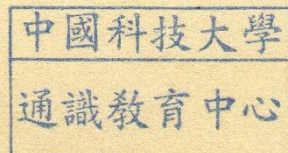 中國科技大學
通識教育中心